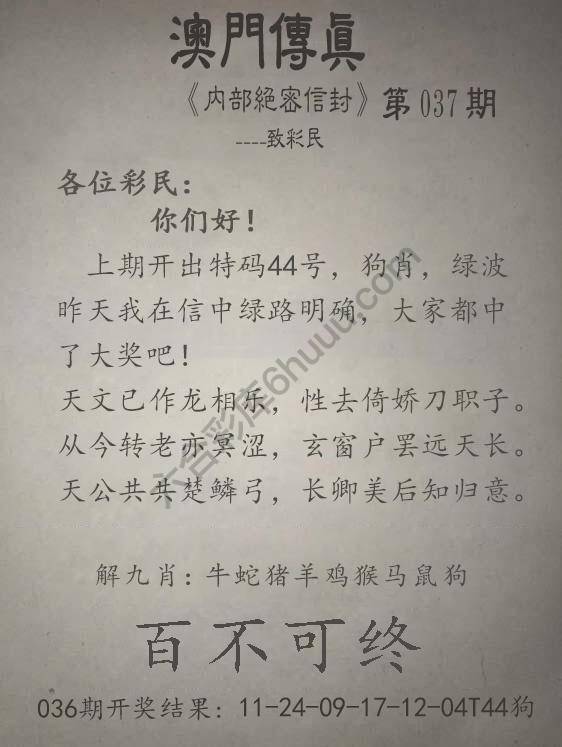 澳門傳眞
《内部絕密信封》第037期
----致彩民
各位彩民：
你们好！
上期开出特码44号，狗肖，绿波
昨天我在信中绿路明确，大家都中
了大奖吧！
天文已作龙相乐，性去倚娇刀职子。
从今转老亦冥涩，玄窗户罢远天长。
天公共共楚鳞弓，长卿美后知归意。
解九肖：牛蛇猪羊鸡猴马鼠狗
百不可终
036期开奖结果：11-24-09-17-12-04T44狗
六合彩库6huuu.com